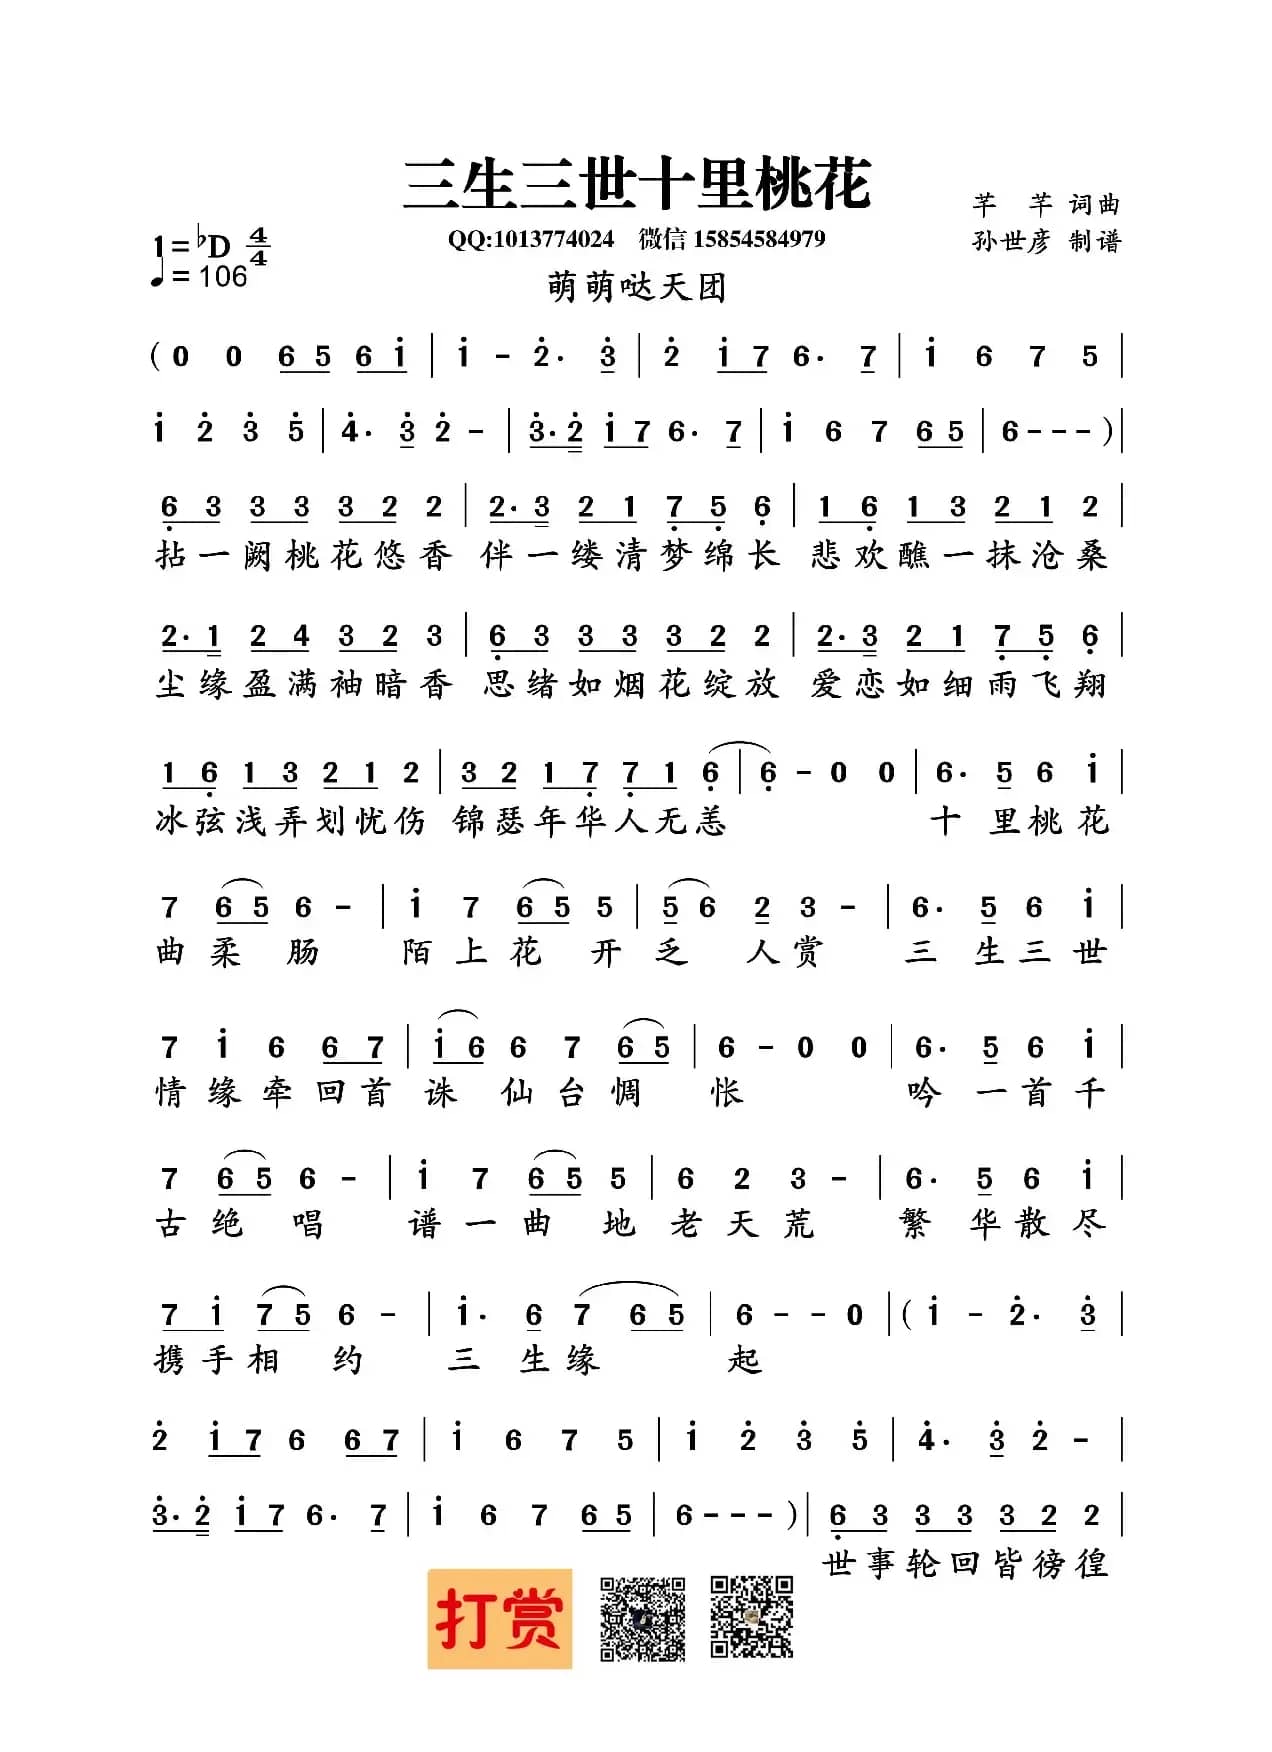 三生三世十里桃花
芊 芊 词曲
1=♭D 4/4
QQ:1013774024 微信 15854584979
孙世彦 制谱
♩= 106
萌萌哒天团
(0 0 6 5 6 i | i - 2̇· 3̇ | 2̇ i 7 6· 7 | i 6 7 5 |
i 2̇ 3̇ 5̇ | 4̇· 3̇ 2̇ - | 3̇· 2̇ i 7 6· 7 | i 6 7 6 5 | 6 - - - ) |
6̣ 3 3 3 3 2 2 | 2· 3 2 1 7̣ 5̣ 6̣ | 1 6̣ 1 3 2 1 2 |
拈一阙桃花悠香 伴一缕清梦绵长 悲欢醮一抹沧桑
2· 1 2 4 3 2 3 | 6̣ 3 3 3 3 2 2 | 2· 3 2 1 7̣ 5̣ 6̣ |
尘缘盈满袖暗香 思绪如烟花绽放 爱恋如细雨飞翔
1 6̣ 1 3 2 1 2 | 3 2 1 7̣ 7̣ 1 6̣ | 6̣ - 0 0 | 6· 5 6 i |
冰弦浅弄划忧伤 锦瑟年华人无恙 十里桃花
7 6 5 6 - | i 7 6 5 5 | 5 6 2 3 - | 6· 5 6 i |
曲柔肠 陌上花开乏人赏 三生三世
7 i 6 6 7 | i 6 6 7 6 5 | 6 - 0 0 | 6· 5 6 i |
情缘牵回首 诛仙台惆怅 吟一首千
7 6 5 6 - | i 7 6 5 5 | 6 2 3 - | 6· 5 6 i |
古绝唱 谱一曲地老天荒 繁华散尽
7 i 7 5 6 - | i· 6 7 6 5 | 6 - - 0 | (i - 2̇· 3̇ |
携手相约 三生缘起
2̇ i 7 6 6 7 | i 6 7 5 | i 2̇ 3̇ 5̇ | 4̇· 3̇ 2̇ - |
3̇· 2̇ i 7 6· 7 | i 6 7 6 5 | 6 - - - ) | 6̣ 3 3 3 3 2 2 |
世事轮回皆徬徨
打赏